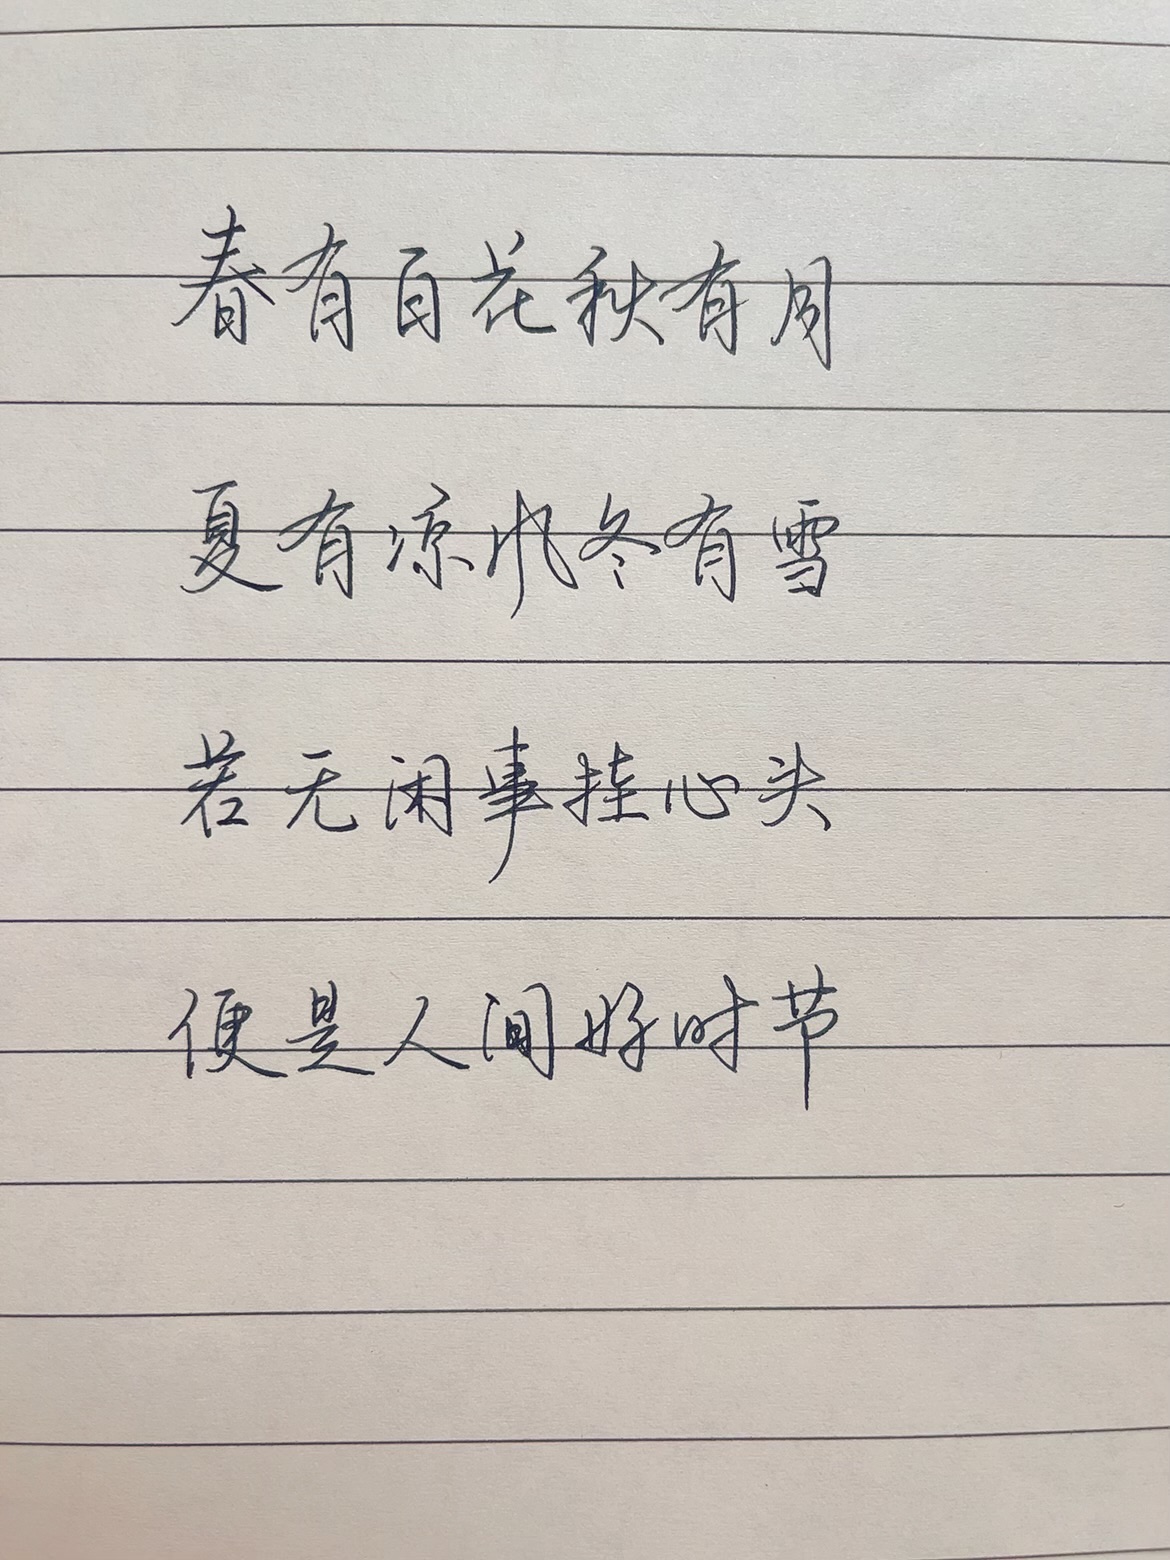 春有百花秋有月
夏有凉风冬有雪
若无闲事挂心头
便是人间好时节